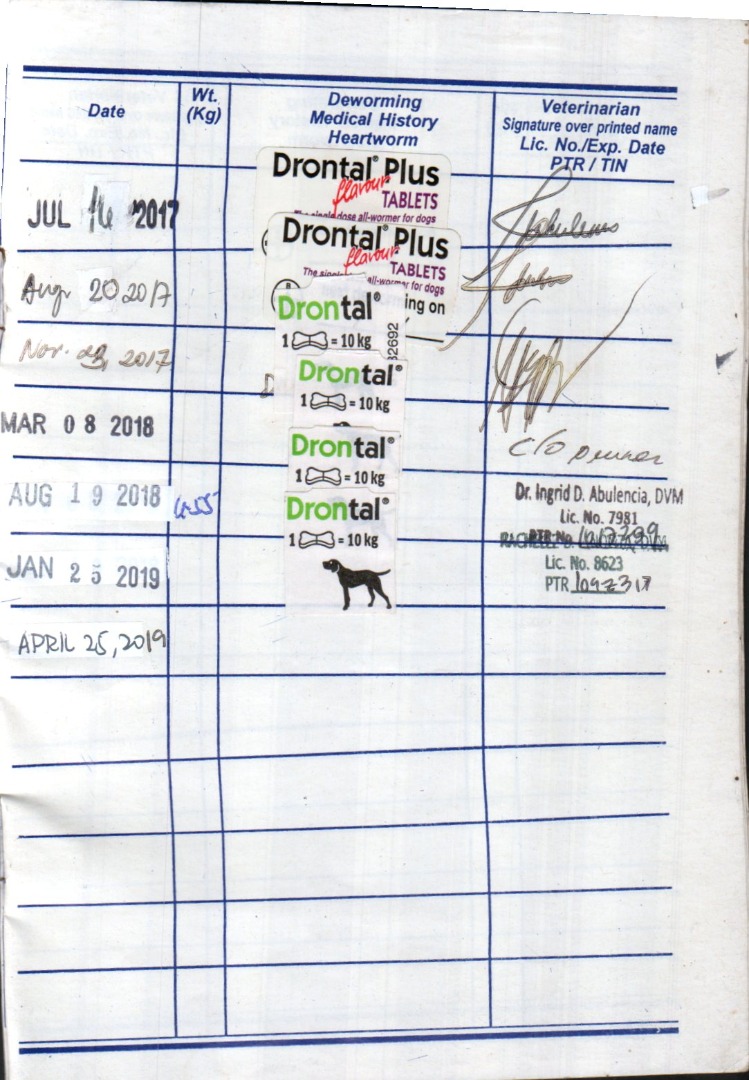 Date
Wt.
(Kg)
Deworming
Medical History
Heartworm
Veterinarian
Signature over printed name
Lic. No./Exp. Date
PTR / TIN
JUL 14 2017
Drontal® Plus
flavour
TABLETS
The single dose all-wormer for dogs
Aug 20 2017
Drontal® Plus
flavour
TABLETS
The single all-wormer for dogs
ing on
Nov. 23, 2017
Drontal®
1 = 10 kg
32692
MAR 08 2018
Drontal®
1 = 10 kg
c/o owner
AUG 19 2018
4.55
Drontal®
1 = 10 kg
Dr. Ingrid D. Abulencia, DVM
Lic. No. 7981
PTR No.
JAN 25 2019
Drontal®
1 = 10 kg
Lic. No. 8623
PTR
APRIL 25, 2019